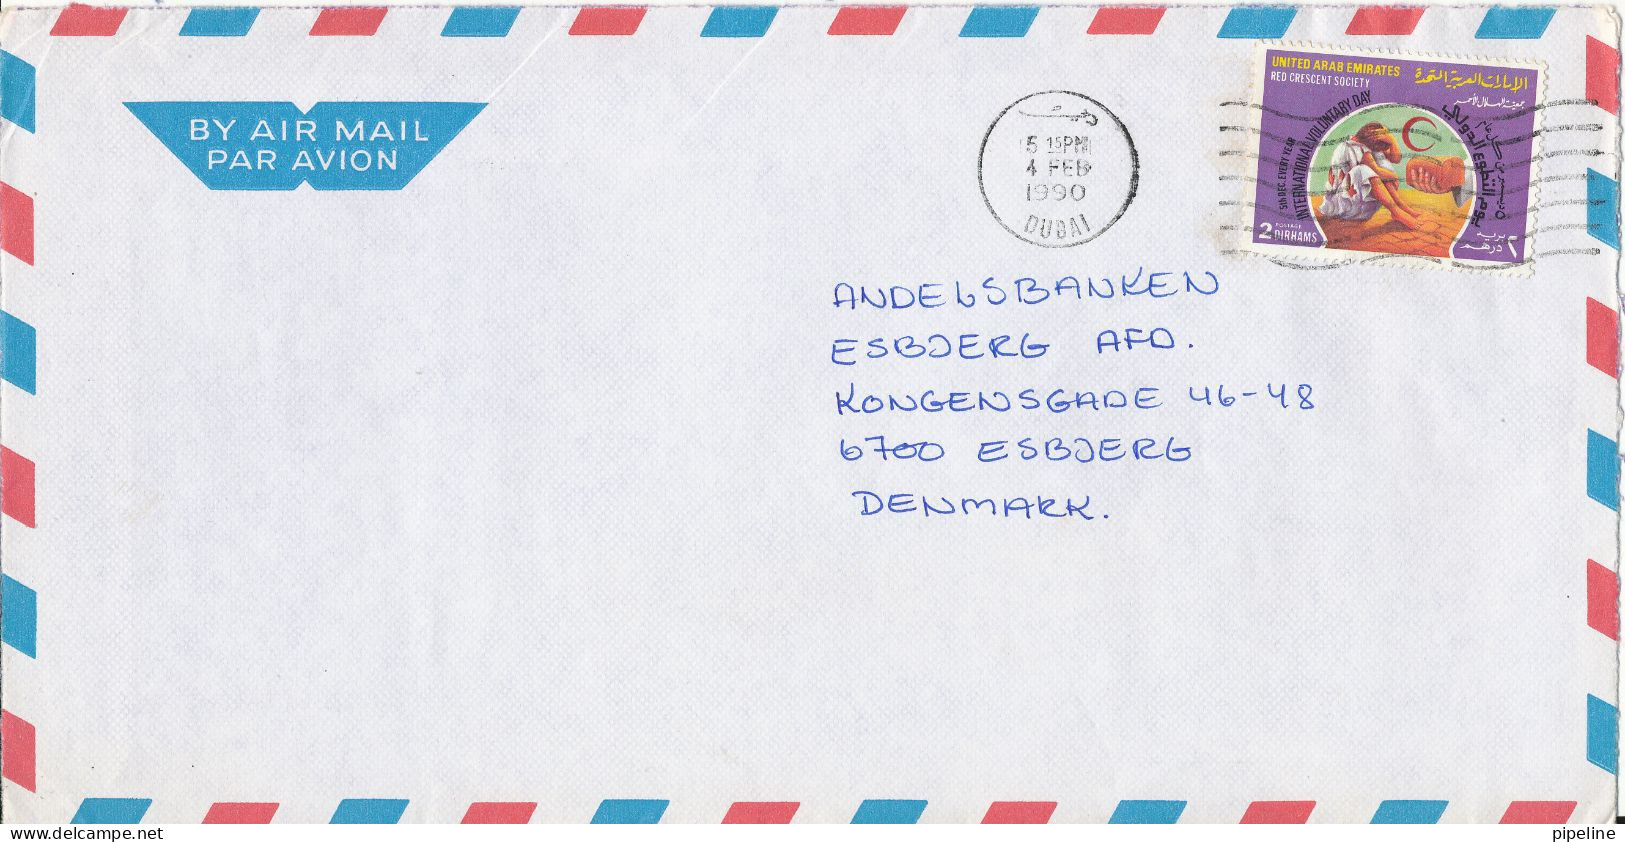 BY AIR MAIL
PAR AVION
دبي
5 15PM
4 FEB
1990
DUBAI
UNITED ARAB EMIRATES
الإمارات العربية المتحدة
RED CRESCENT SOCIETY
جمعية الهلال الأحمر
5th DEC. EVERY YEAR
INTERNATIONAL VOLUNTARY DAY
يوم التطوع الدولي
٥ ديسمبر من كل عام
2 POSTAGE
DIRHAMS
بريد
٢ درهم
ANDELSBANKEN
ESBJERG AFD.
KONGENSGADE 46-48
6700 ESBJERG
DENMARK.
www.delcampe.net
pipeline